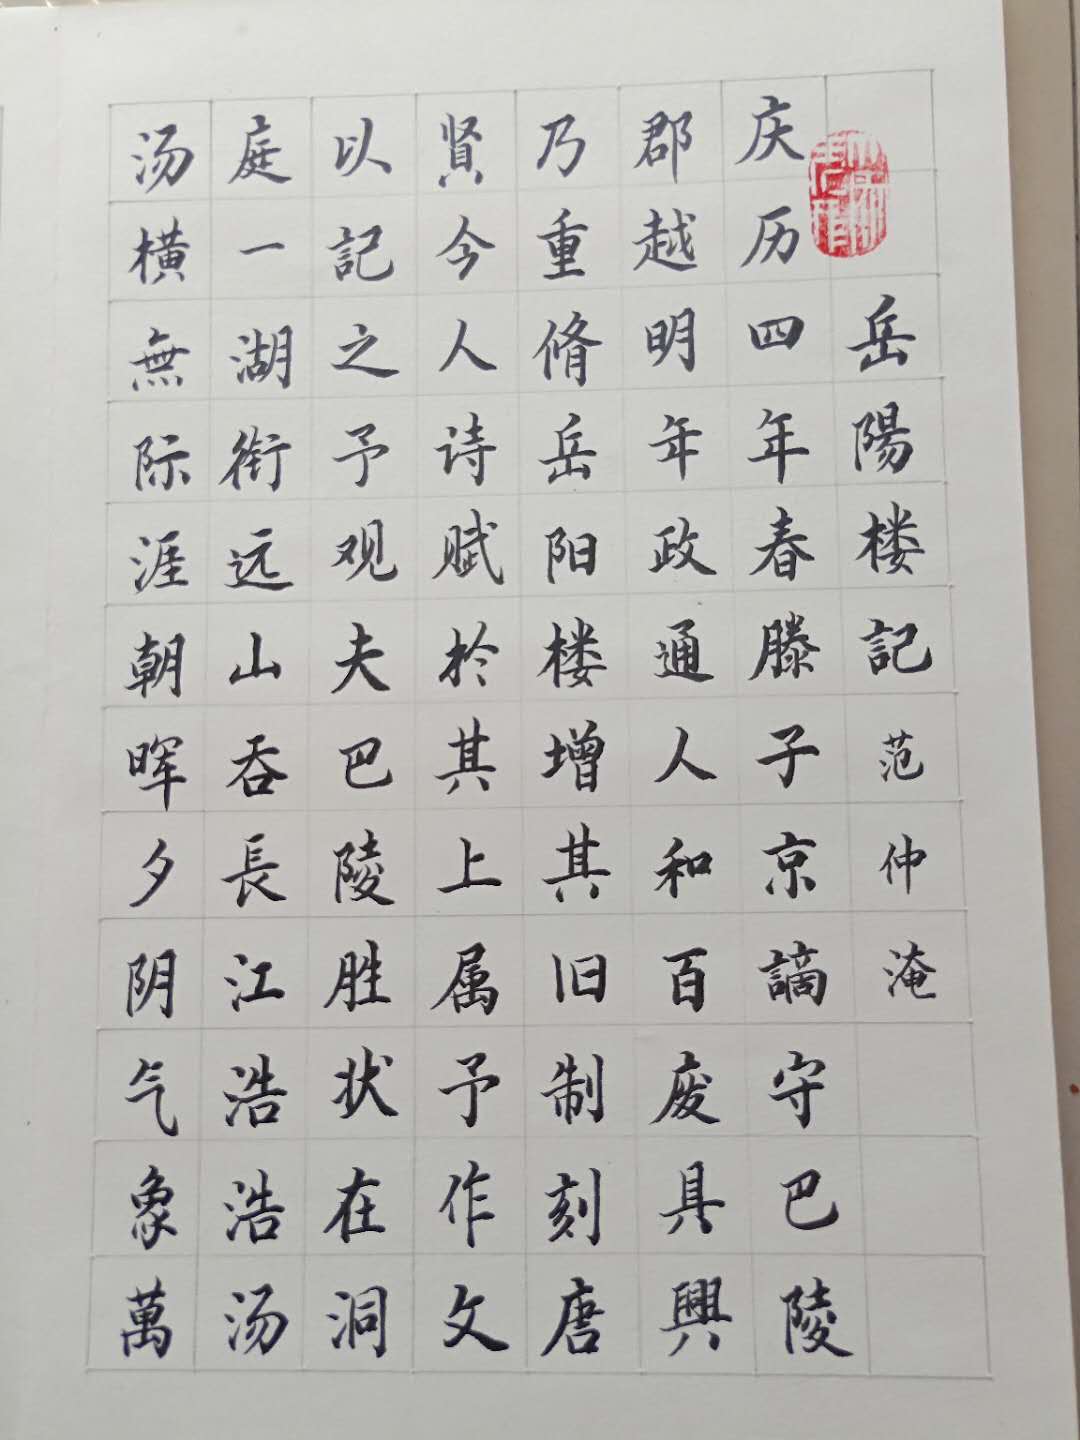 岳陽楼記 范仲淹
庆历四年春滕子京謫守巴陵
郡越明年政通人和百废具興
乃重脩岳阳楼增其旧制刻唐
賢今人诗赋於其上属予作文
以記之予观夫巴陵胜状在洞
庭一湖銜远山吞長江浩浩汤
汤横無际涯朝晖夕阴气象萬